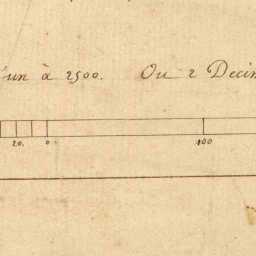 d'un à 2500. Ou 2 Decim
20. 0. 100